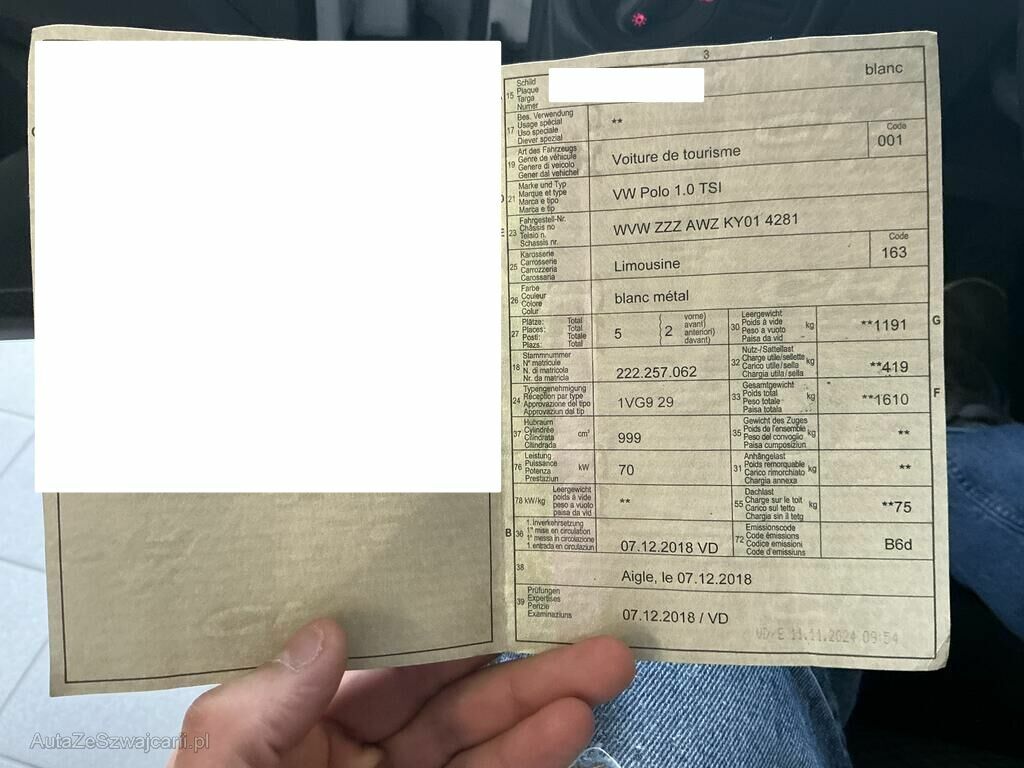 3
15 Schild
Plaque
Targa
Numer
blanc
17 Bes. Verwendung
Usage spécial
Uso speciale
Diever spezial
**
19 Art des Fahrzeugs
Genre de véhicule
Genere di veicolo
Gener dal vehichel
Voiture de tourisme
Code
001
21 Marke und Typ
Marque et type
Marca e tipo
Marca e tip
VW Polo 1.0 TSI
E 23 Fahrgestell-Nr.
Châssis no
Telaio n.
Schassis nr.
WVW ZZZ AWZ KY01 4281
25 Karosserie
Carrosserie
Carrozzeria
Carossaria
Limousine
Code
163
26 Farbe
Couleur
Colore
Colur
blanc métal
27 Plätze: Total
Places: Total
Posti: Totale
Plazs: Total
5 2
vorne)
avant)
anteriori)
davant)
30 Leergewicht
Poids à vide
Peso a vuoto
Paisa da vid
kg
**1191
G
18 Stammnummer
N° matricule
N. di matricola
Nr. da matricla
222.257.062
32 Nutz-/Sattellast
Charge utile/sellette
Carico utile/sella
Chargia utila/sella
kg
**419
24 Typengenehmigung
Réception par type
Approvazione del tipo
Approvaziun dal tip
1VG9 29
33 Gesamtgewicht
Poids total
Peso totale
Paisa totala
kg
**1610
F
37 Hubraum
Cylindrée
Cilindrata
Cilindrada
cm³
999
35 Gewicht des Zuges
Poids de l'ensemble
Peso del convoglio
Paisa cumposiziun
kg
**
76 Leistung
Puissance
Potenza
Prestaziun
kW
70
31 Anhängelast
Poids remorquable
Carico rimorchiato
Chargia annexa
kg
**
78 kW/kg Leergewicht
poids à vide
peso a vuoto
paisa da vid
**
55 Dachlast
Charge sur le toit
Carico sul tetto
Chargia sin il tetg
kg
**75
B 36 1. Inverkehrsetzung
1re mise en circulation
1a messa in circolazione
1. entrada en circulaziun
07.12.2018 VD
72 Emissionscode
Code émissions
Codice emissioni
Code d'emissiuns
B6d
38
Aigle, le 07.12.2018
39 Prüfungen
Expertises
Perizie
Examinaziuns
07.12.2018 / VD
11.11.2024 09:54
AutaZeSzwajcarii.pl